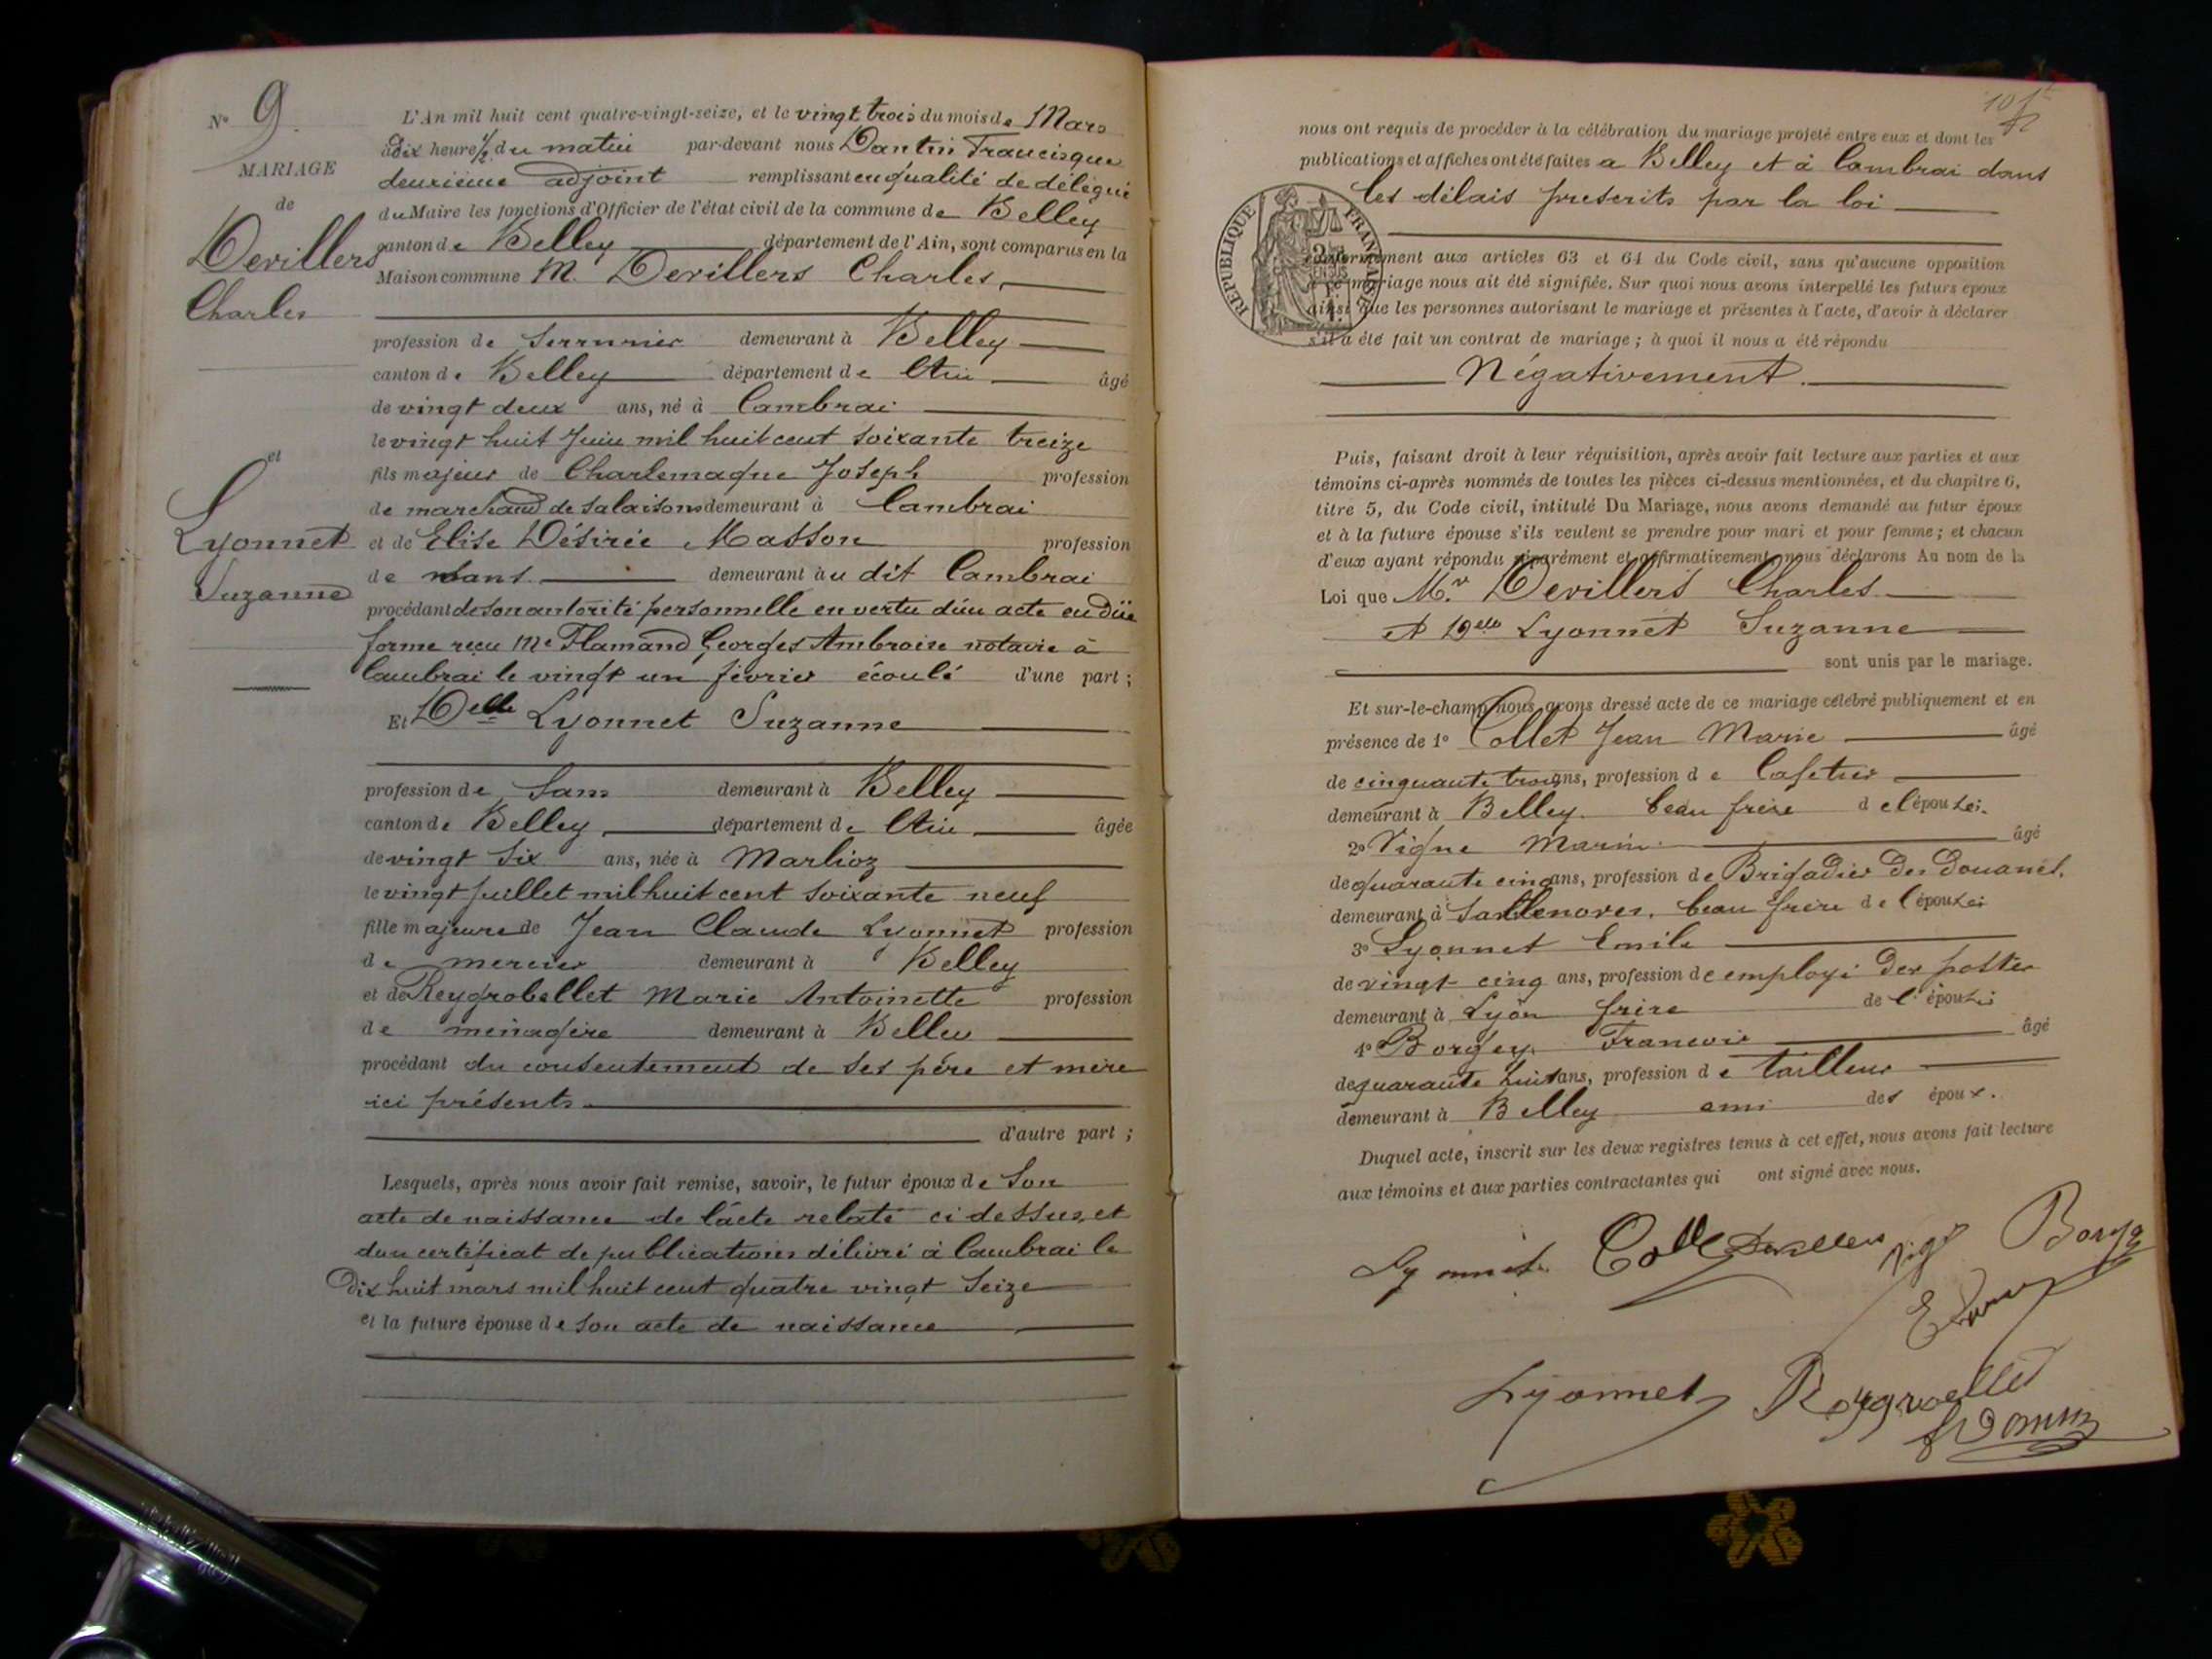 N° 9.
MARIAGE
de
Devillers
Charles
et
Lyonnet
Suzanne
L'An mil huit cent quatre-vingt-seize, et le vingt trois du mois de Mars
à dix heure ½ du matin par-devant nous Dantin Francisque
deuxième adjoint remplissant en qualité de délégué
du Maire les fonctions d'Officier de l'état civil de la commune de Belley
canton de Belley département de l'Ain, sont comparus en la
Maison commune M. Devillers Charles,
profession de Serrurier demeurant à Belley
canton de Belley département de l'Ain âgé
de vingt deux ans, né à Cambrai
le vingt huit Juin mil huit cent soixante treize
fils majeur de Charlemagne Joseph profession
de marchand de salaisons demeurant à Cambrai
et de Elise Désirée Masson profession
de demeurant à u dit Cambrai
procédant de son autorité personnelle en vertu d'un acte en dûe
forme reçu Me Flamand Georges Ambroise notaire à
Cambrai le vingt un février écoulé d'une part ;
Et Delle Lyonnet Suzanne
profession de Sans demeurant à Belley
canton de Belley, département de l'Ain, âgée
de vingt six ans, née à Marlioz
le vingt Juillet mil huit cent soixante neuf
fille majeure de Jean Claude Lyonnet profession
de mercier demeurant à Belley
et de Reygrobellet Marie Antoinette profession
de ménagère demeurant à Belley
procédant du consentement de ses père et mère
ici présents
d'autre part ;
Lesquels, après nous avoir fait remise, savoir, le futur époux de Son
acte de naissance de l'acte relaté ci dessus, et
d'un certificat de publications délivré à Cambrai le
Dix huit mars mil huit cent quatre vingt Seize
et la future épouse de son acte de naissance
nous ont requis de procéder à la célébration du mariage projeté entre eux et dont les
publications et affiches ont été faites a Belley et à Cambrai dans
les délais prescrits par la loi
REPUBLIQUE FRANÇAISE
conformément aux articles 63 et 64 du Code civil, sans qu'aucune opposition
à ce mariage nous ait été signifiée. Sur quoi nous avons interpellé les futurs époux
ainsi que les personnes autorisant le mariage et présentes à l'acte, d'avoir à déclarer
s'il a été fait un contrat de mariage ; à quoi il nous a été répondu
Négativement.
Puis, faisant droit à leur réquisition, après avoir fait lecture aux parties et aux
témoins ci-après nommés de toutes les pièces ci-dessus mentionnées, et du chapitre 6,
titre 5, du Code civil, intitulé Du Mariage, nous avons demandé au futur époux
et à la future épouse s'ils veulent se prendre pour mari et pour femme ; et chacun
d'eux ayant répondu séparément et affirmativement, nous déclarons Au nom de la
Loi que Mr. Devillers Charles
et Delle Lyonnet Suzanne
sont unis par le mariage.
Et sur-le-champ nous avons dressé acte de ce mariage célébré publiquement et en
présence de 1° Collet Jean Marie âgé
de cinquante trois ans, profession de Cafetier
demeurant à Belley. beau frère de l'épouse.
2° Vigne Marin âgé
de quarante cinq ans, profession de Brigadier des Douanes,
demeurant à Sallenoves. beau frère de l'épouse
3° Lyonnet Emile
de vingt cinq ans, profession de employé des postes
demeurant à Lyon frère de l'épouse
4° Borgey François âgé
de quarante huit ans, profession de tailleur
demeurant à Belley ami des époux.
Duquel acte, inscrit sur les deux registres tenus à cet effet, nous avons fait lecture
aux témoins et aux parties contractantes qui ont signé avec nous.
Lyonnet Collet Devillers Vigne Borgey
Lyonnet Reygrobellet